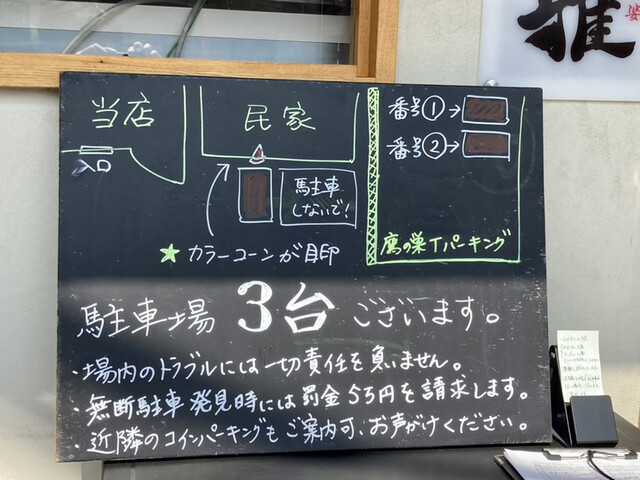 当店
入口
民家
番号①→
番号②→
駐車
しないで!
★カラーコーンが目印
鷹の巣Tパーキング
駐車場 3台 ございます。
・場内のトラブルには一切責任を負いません。
・無断駐車発見時には罰金5万円を請求します。
・近隣のコインパーキングもご案内可、お声がけください。
雅